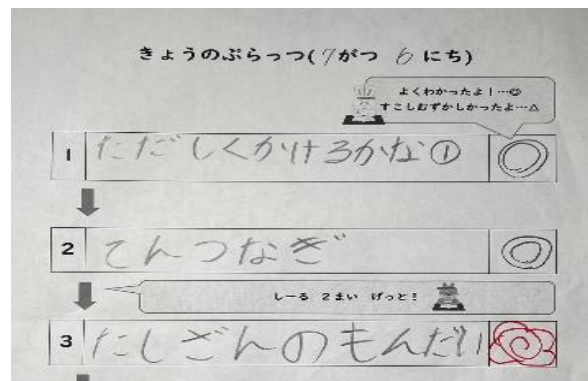 きょうのぷらっつ(7がつ 6にち)
よくわかったよ!…◎
すこしむずかしかったよ…△
1 ただしくかけるかな①
2 てんつなぎ
しーる 2まい げっと!
3 たしざんのもんだい